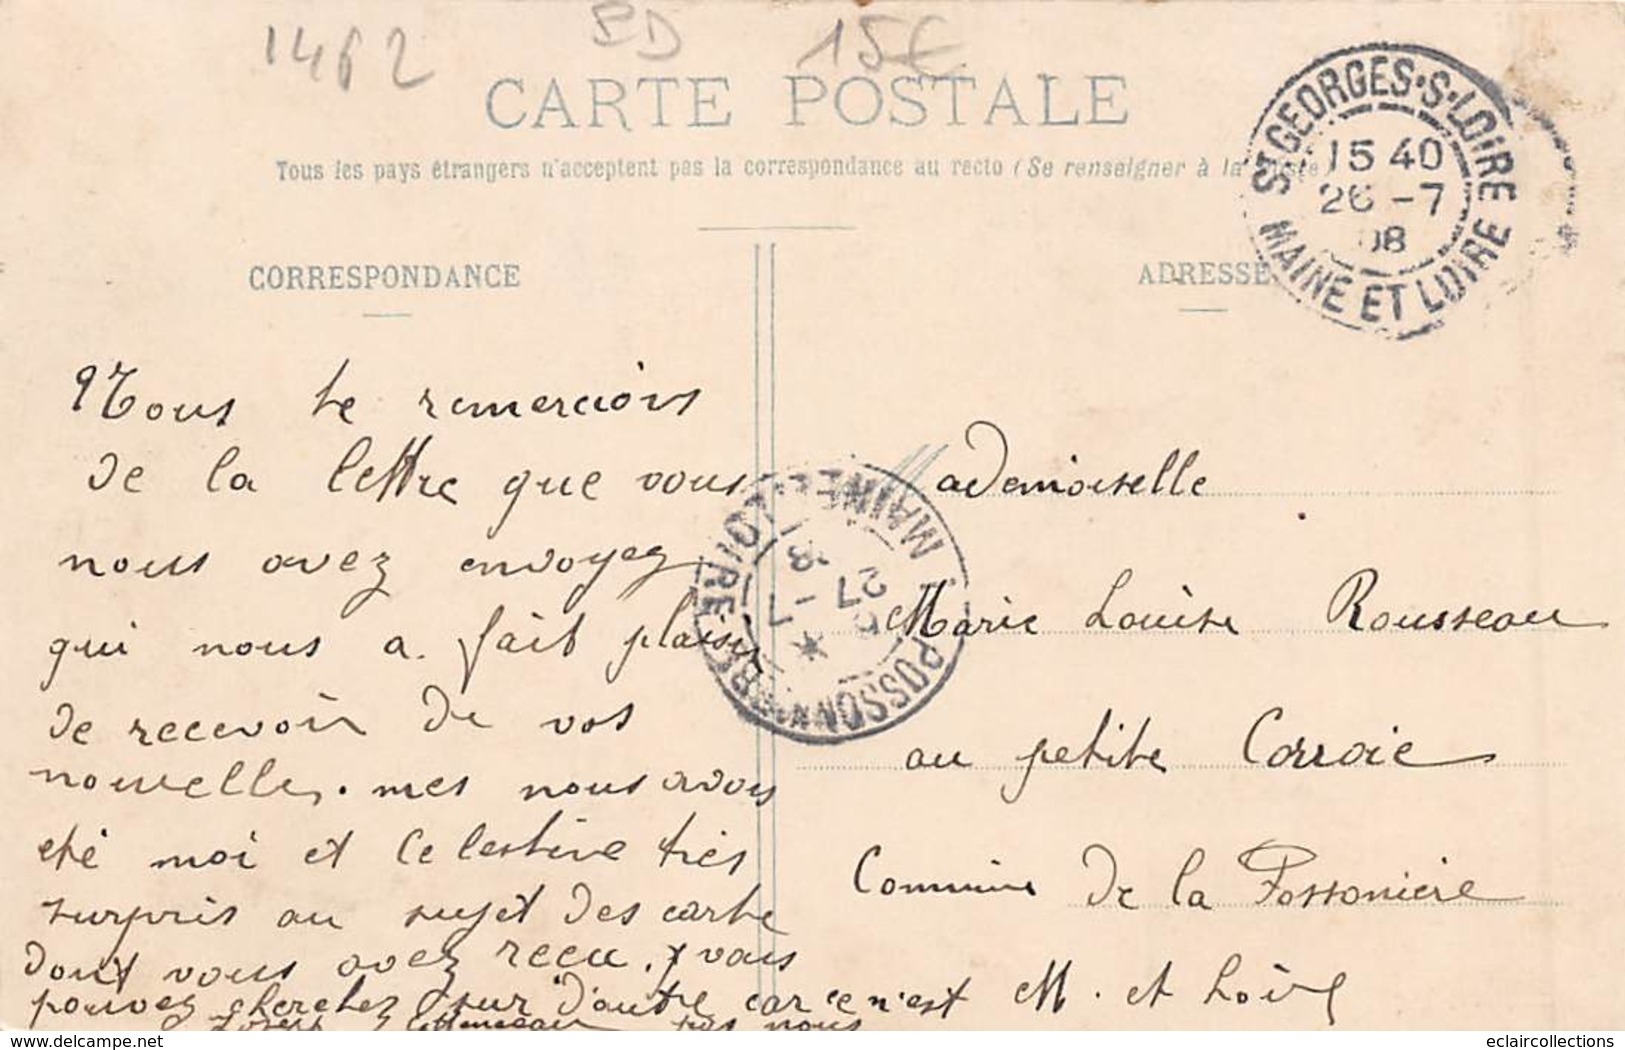 1462 BD 15€
CARTE POSTALE
Tous les pays étrangers n'acceptent pas la correspondance au recto (Se renseigner à la Poste)
ST GEORGES-S-LOIRE
15 40
26 -7
08
MAINE ET LOIRE
CORRESPONDANCE
ADRESSE
Nous te remercions
de la lettre que vous
nous avez envoyez
qui nous a fait plaisir
de recevoir de vos
nouvelle. mes nous avons
eté moi et Celestine tres
surpris au sujet des carte
dont vous avez recu. vous
pouvez cherchez sur d'autre car ce n'est
pas nous
MAINE ET LOIRE
27 -7
08
POSSONNIERE
Mademoiselle
Marie Louise Rousseau
au petite Carroie
Commune de la Possoniere
M. et Loire
eclaircollections